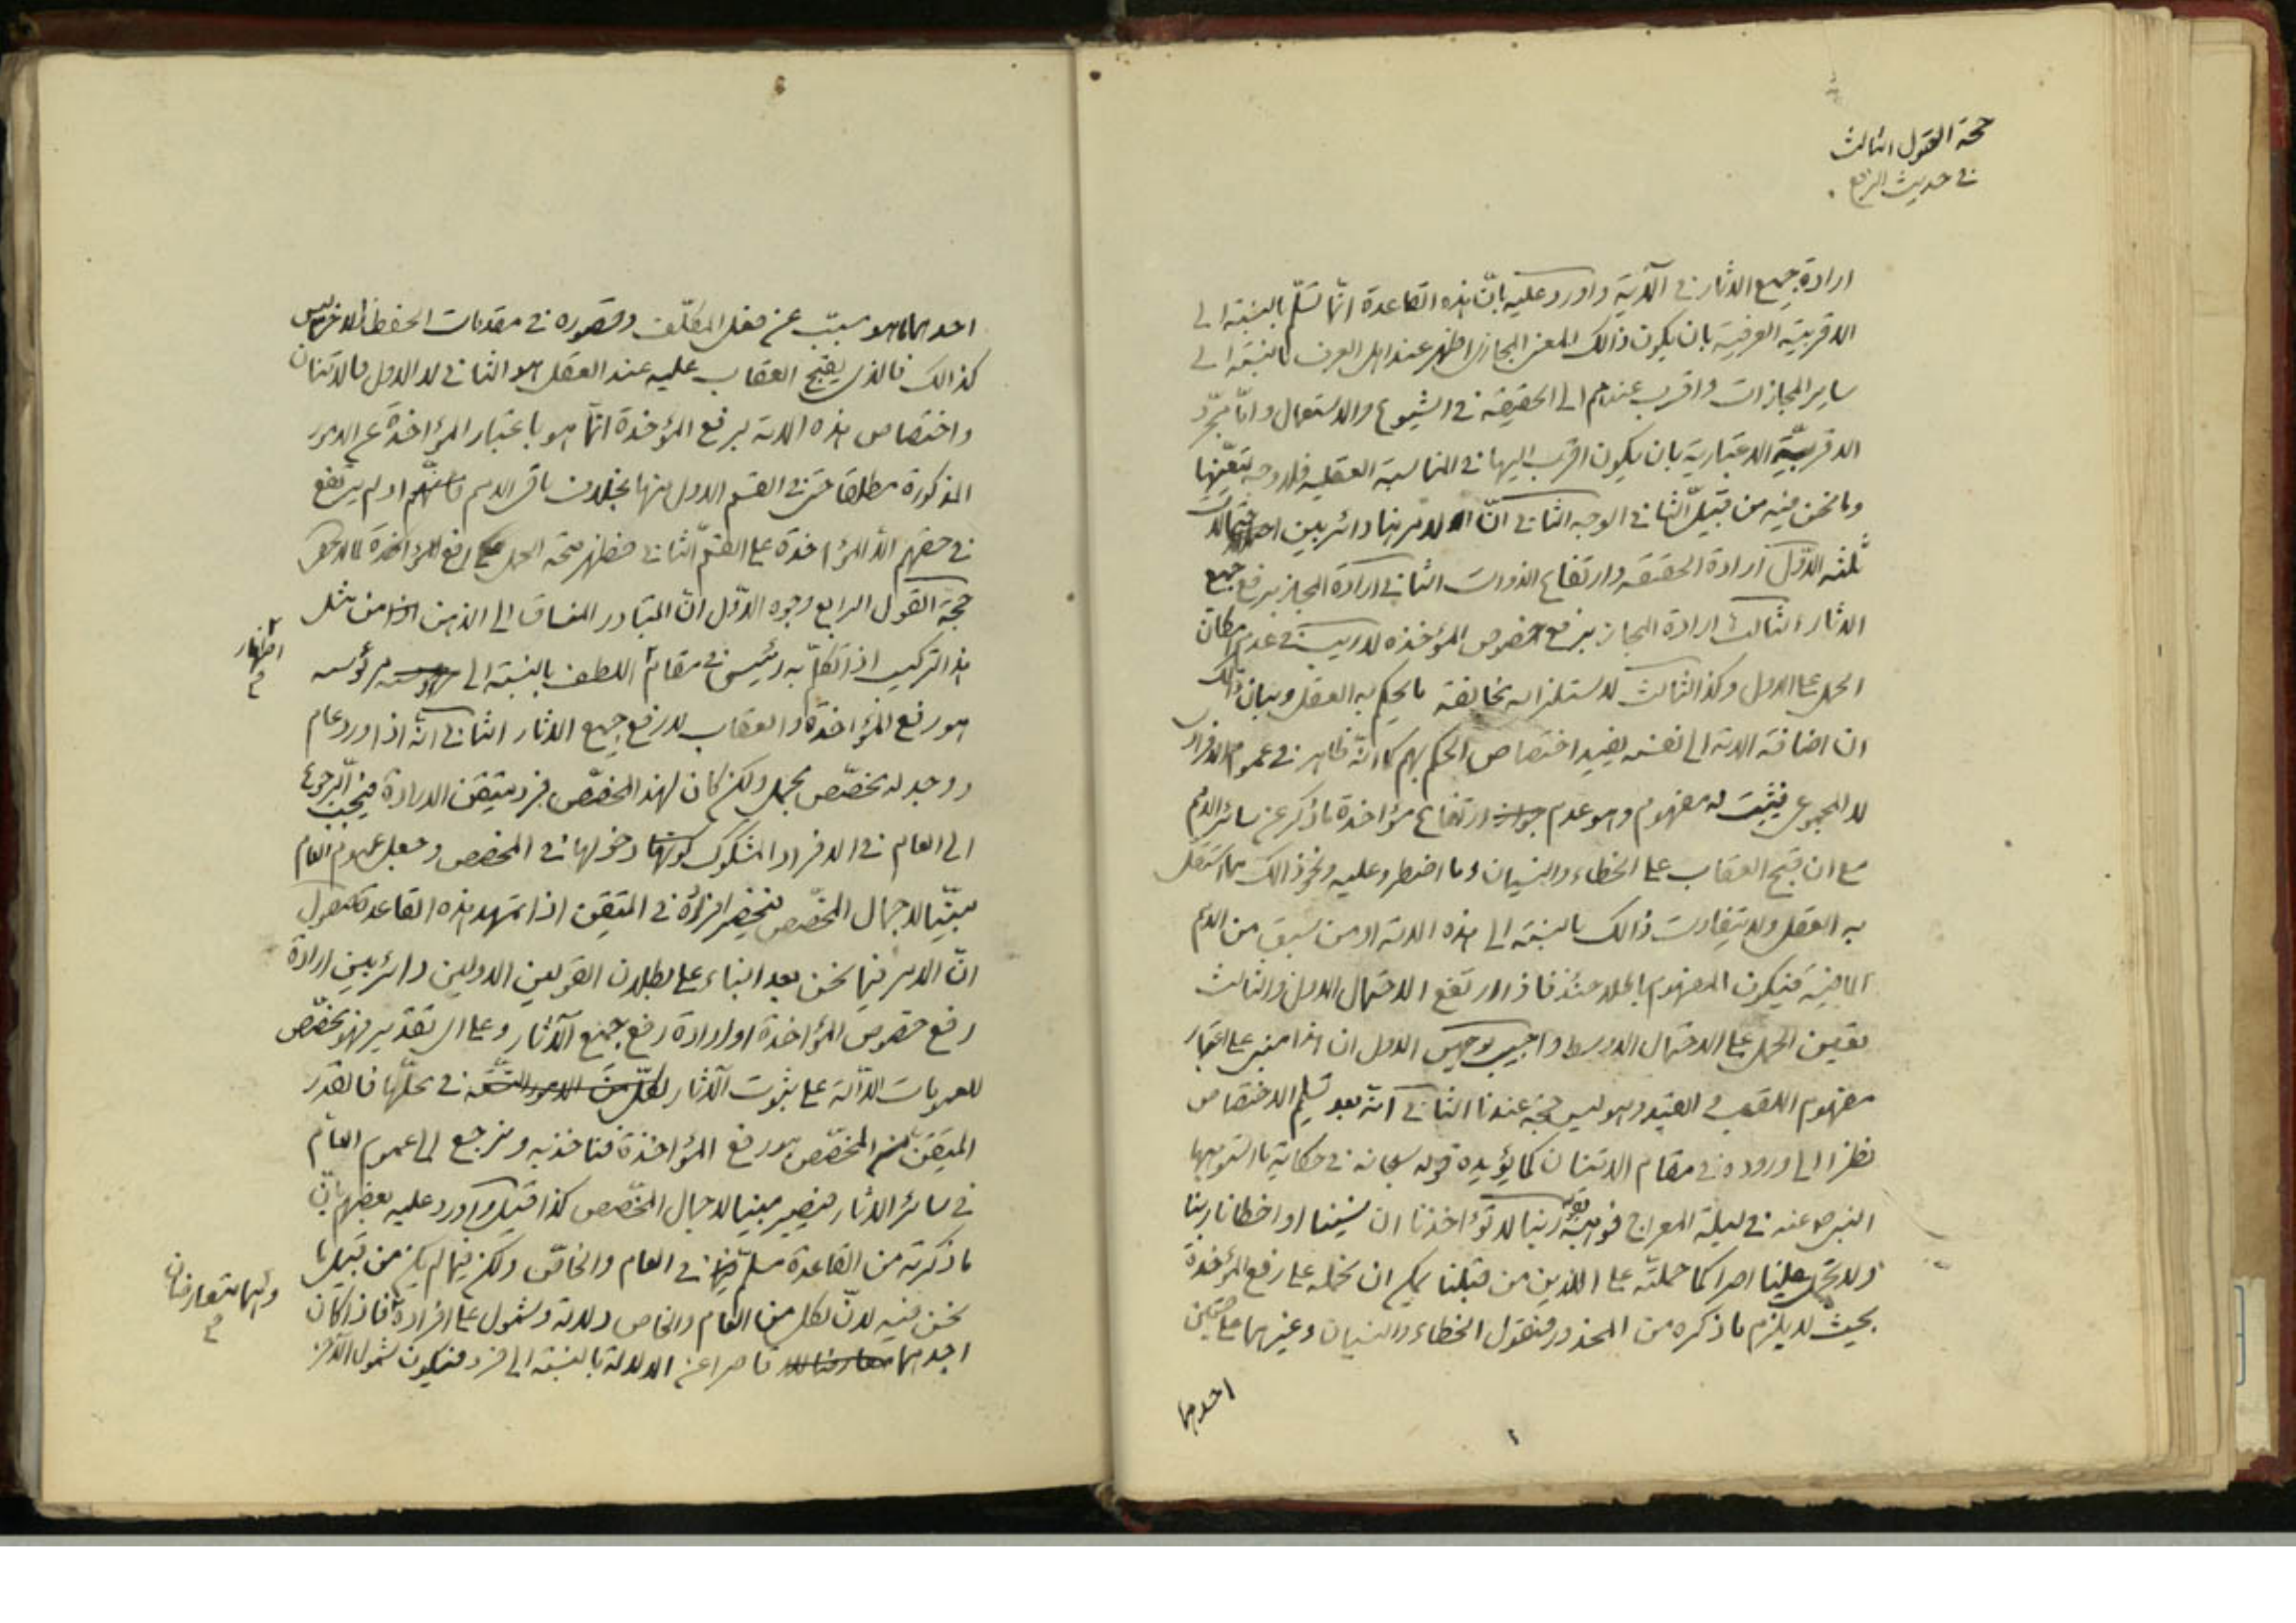 حجة القول الثالث
في حديث الرفع
ارادة جميع الاثار في الآتية واورد عليه بانّ هذه القاعدة انّما تسلّم بالنسبة الى
الاقربية العرفية بان يكون ذالك المعنى المجازي اظهر عند اهل العرف بالنسبة الى
ساير المجازات واقرب عندهم الى الحقيقة في الشيوع والاستعمال وامّا مجرّد
الاقربيّة الاعتبارية بان يكون اقرب اليها في المناسبة العقلية فلا وجه لتعيّنها
وما نحن فيه من قبيل الثاني الوجه الثاني انّ الامر هنا دائر بين احتمالات
ثلثه الاوّل ارادة الحقيقه وارتفاع الذوات الثاني ارادة المجاز برفع جميع
الاثار الثالث ارادة المجاز برفع خصوص المؤخذه لا ريب في عدم امكان
الحمل على الاول وكذا الثالث لاستلزامه مخالفة ما يحكم به العقل وبيان ذالك
ان اضافة الامة الى نفسه يفيد اختصاص الحكم بهم كما انّه ظاهر في عموم الافراد
لا المجموع فيثبت له مفهوم وهو عدم ارتفاع مؤاخذة ما ذكر عن سائر الامم
مع ان قبح العقاب على الخطاء والنسيان وما اضطر وعليه ونحو ذالك مما استقل
به العقل ولا يتفاوت ذالك بالنسبة الى هذه الامة او من سبق من الامم
الماضية فيكون المفهوم باطلا حينئذ فاذا ارتفع الاحتمال الاول والثالث
تعين الحمل على الاحتمال الاوسط واجيب بوجهين الاول ان هذا مبنى على اعتبار
مفهوم اللقب في القيد وهو ليس حجة عندنا الثاني انّه بعد تسليم الاختصاص
نظرا الى وروده في مقام الامتنان كما يؤيده قوله سبحانه في حكاية ما استوهبها
النبي ص عنه في ليلة المعراج ربنا لا تؤاخذنا ان نسينا او اخطانا ربنا
ولا تحمل علينا اصرا كما حملته على الذين من قبلنا يمكن ان نحمله على رفع المؤخذة
بحيث لا يلزم ما ذكره من المحذور فنقول الخطاء والنسيان وغيرهما على قسمين
احدهما
احدهما ما هو مسبّب عن فعل المكلّف وقصوره في مقدمات الحفظ والاخر ليس
كذالك فالذي يقبح العقاب عليه عند العقل هو الثاني لا الاول فالامتنان
واختصاص هذه الامة برفع المؤخذة انّما هو باعتبار المؤاخذة عن الامور
المذكورة مطلقا حتى في القسم الاول منها بخلاف باقي الامم فانّهم اذ لم يرتفع
في حقهم الّا المؤاخذة على القسم الثاني فظهر صحة الحمل على رفع المؤاخذة
حجة القول الرابع وجوه الاوّل انّ المتبادر المنساق الى الذهن من مثل
هذا التركيب اذا تكلّم به رئيس في مقام اللطف بالنسبة الى مرؤسه
اظهار
هو رفع المؤاخذة والعقاب لا رفع جميع الاثار الثاني انّه اذا ورد عام
ووجد له مخصّص مجمل ولكن كان لهذا المخصّص فرد متيقن الارادة فيجب الرجوع
الى العام في الافراد المشكوك دخولها في المخصص وجعل عموم العام
مبيّنا لاجمال المخصّص فينحصر افراده في المتيقن اذا تمهد هذه القاعدة فنقول
انّ الامر فيما نحن بعد البناء على بطلان القولين الاولين دائر بين ارادة
رفع خصوص المؤاخذة او ارادة رفع جميع الآثار وعلى اى تقدير فهو مخصّص
للعمومات الدّالة على ثبوت الآثار في محلّها فالقدر
المتيقن من المخصّص هو رفع المؤاخذة فناخذ به ونرجع الى عموم العام
في سائر الاثار فيصير مبينا لاجمال المخصّص كذا قيل واورد عليه بعضهم بانّ
ما ذكرته من القاعدة مسلّم في العام والخاصّ ولكن فيما لم يكن من قبيل ما
نحن فيه لانّ لكل من العام والخاص دلالة وشمول على افراده فاذا كان
وانهما متعارضان
احدهما قاصرا عن الدلالة بالنسبة الى فرد فيكون شمول الآخر